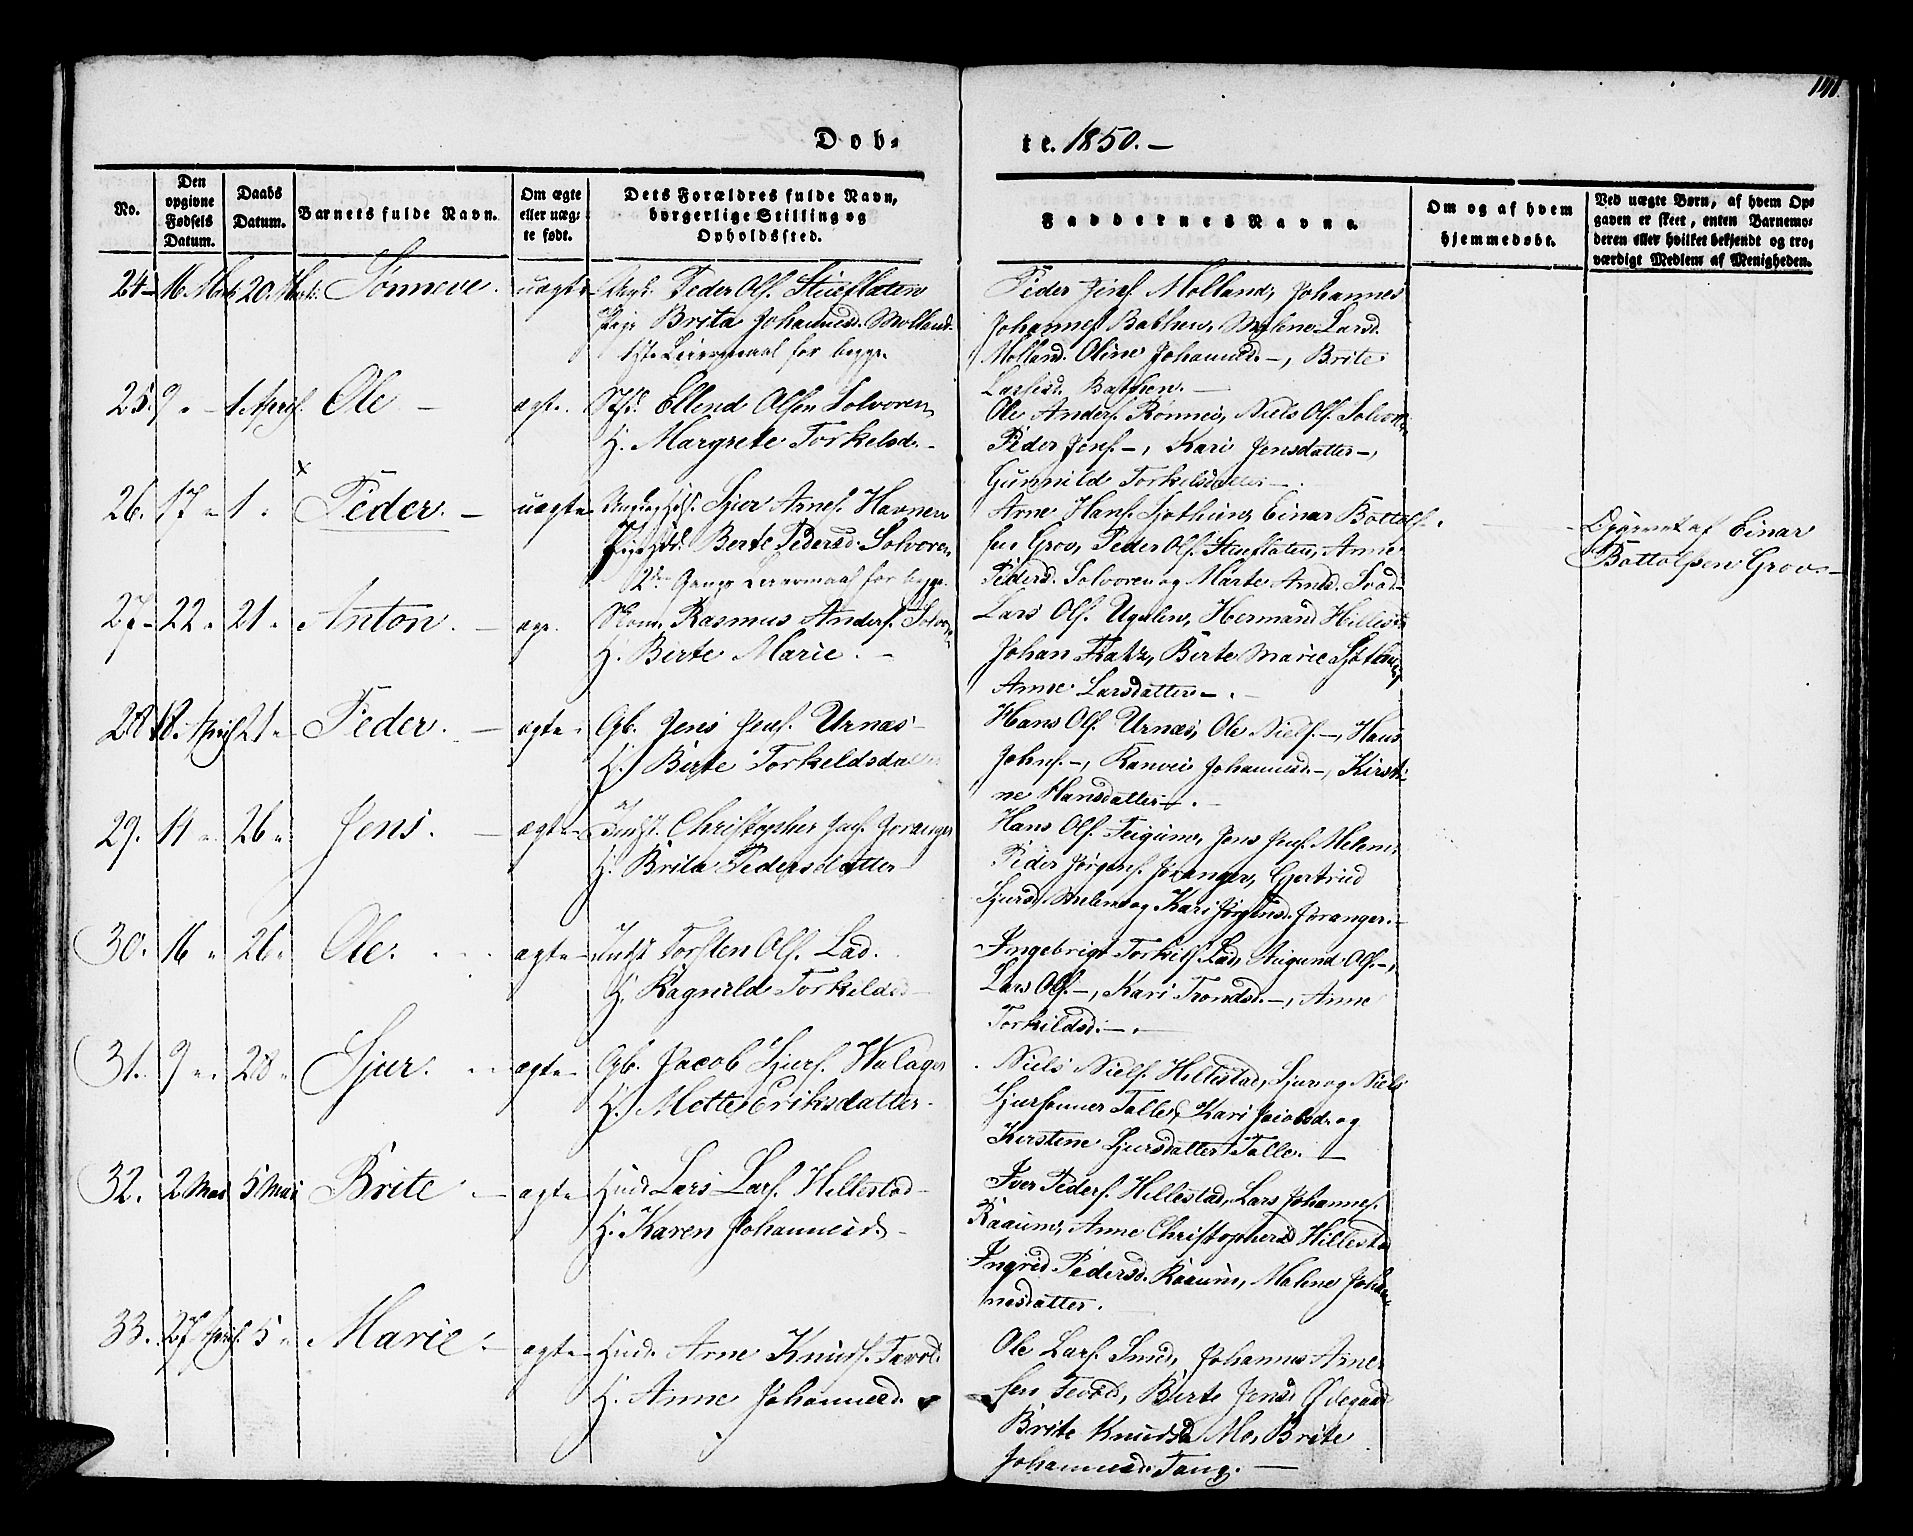 141.
Døb-
te. 1850. –
No.
Den opgivne Fødsels Datum.
Daabs Datum.
Barnets fulde Navn.
Om ægte eller uæg-te født.
Dets Forældres fulde Navn, borgerlige Stilling og Opholdssted.
Faddernes Navne.
Om og af hvem hjemmedøbt.
Ved uægte Børn, af hvem Op-gaven er skeet, enten Barnemo-deren eller hvilket bekjendt og tro-værdigt Medlem af Menigheden.
24 – 16 Marts 20. Marts. Sønneve. uægte Ungk. Peder Ols. Stuefloten
Pige Brita Johannesd. Molland.
1ste Leiermaal for begge.
Peder Jens. Molland, Johannes
Johannes. Bathen, Malene Larsd.
Molland. Oline Johannesd. –, Brite
Larsesd. Bathen. –
25. 9 " – 1 April. Ole – ægte. Ellend Olsen Solvoren
H. Margrete Torkelsd. –
Ole Anders. Rønnei, Niels Ols. Solvoren
Peder Jens. –, Kari Jensdatter –,
Gunnild Torkelsdatter –.
26. 17 " 1 " Peder. – uægte Sjur Arnes. Havnen
Berte Pedersd. Solvoren
2den Gangs Leiermaal for begge.
Arne Hans. Kjøthun, Einar Bottols.
sen Grov, Peder Ols. Stuefloten, Anne
Pedersd. Solvoren og Marte Arnesd. –
Opgivet af Einar
Bottolfsen Grov. –
27 – 22 " 21 " Anton. – ægte. Rasmus Anders. Solvoren
H. Berte Marie. –
Lars Ols. Ugulen, Hermand Hillestad
Johan Fratz, Berte Marie Kjøthun
Anne Larsdatter –.
28 12. April 21 " Peder. – ægte. Gb. Jens Jens. Urnæs –
H. Berte Torkeldsdatter
Hans Ols. Urnæs, Ole Niels. –, Hans
Johns. –, Ranvei Johannesd. –, Kirsti-
ne Hansdatter –.
29. 11 " 26 " Jens. – ægte – Indst. Christopher Jac. Joranger
H. Brita Pedersdatter –
Hans Ols. Feigum, Jens Jens. Melem
Peder Jørgens. Joranger, Gjertrud
Sjursd. Melem og Kari Jørgensd. Joranger. –
30. 16 " 26 " Ole. ægte – Indst Torsten Ols. Lad.
H. Ragnild Torkeldsd –
Ingebrigt Torkils. Lad, Sigurd Ols. –,
Lars Ols. –, Kari Trondsd. –, Anne
Torkildsd. –.
31. 9 " 28 " Sjur. ægte – Gb. Jacob Sjurs. Walager
H. Mette Eriksdatter.
Niels Niels. Hillestad, Sjur og Niels
Sjursønner Talle, Kari Jacobsd. og
Kirstene Sjursdatter Talle. –
32. 2. Mai 5. Mai Brite – ægte – Huusd Lars Lars. Hillestad –
H. Karen Johannesd –
Iver Peders. Hillestad, Lars Johannes.
Raaum, Anne Christophersd Hillestad
Ingrid Pedersd. Raaum, Malene Johan-
nesdatter.
33. 27 April. 5 " Marie. – ægte – Huusd. Arne Knuds. Tevold.
H. Anne Johannesd.
Ole Lars. Smed, Johannes Arne-
sen Tevold, Berte Jensd Ødegaard
Brite Knudsd Mo, Brite
Johannesd. Tang. –